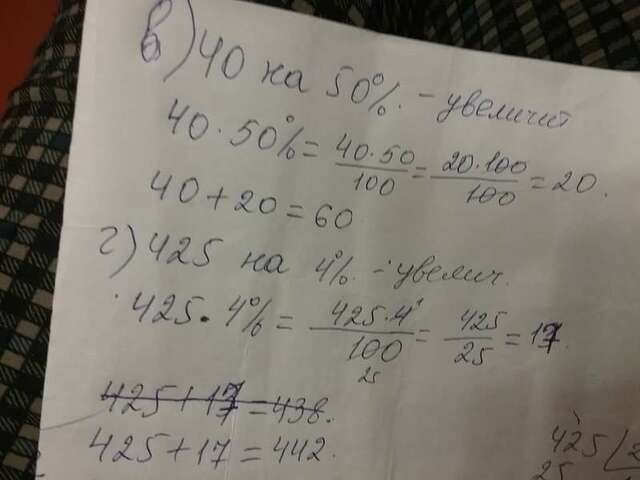 в) 40 на 50%. - увеличит
40 · 50% = 40·50/100 = 20·100/100 = 20.
40 + 20 = 60
г) 425 на 4%. - увелич.
425 · 4% = 425·4 1/100 25 = 425/25 = 17.
425 + 17 = 438.
425 + 17 = 442.
425
25